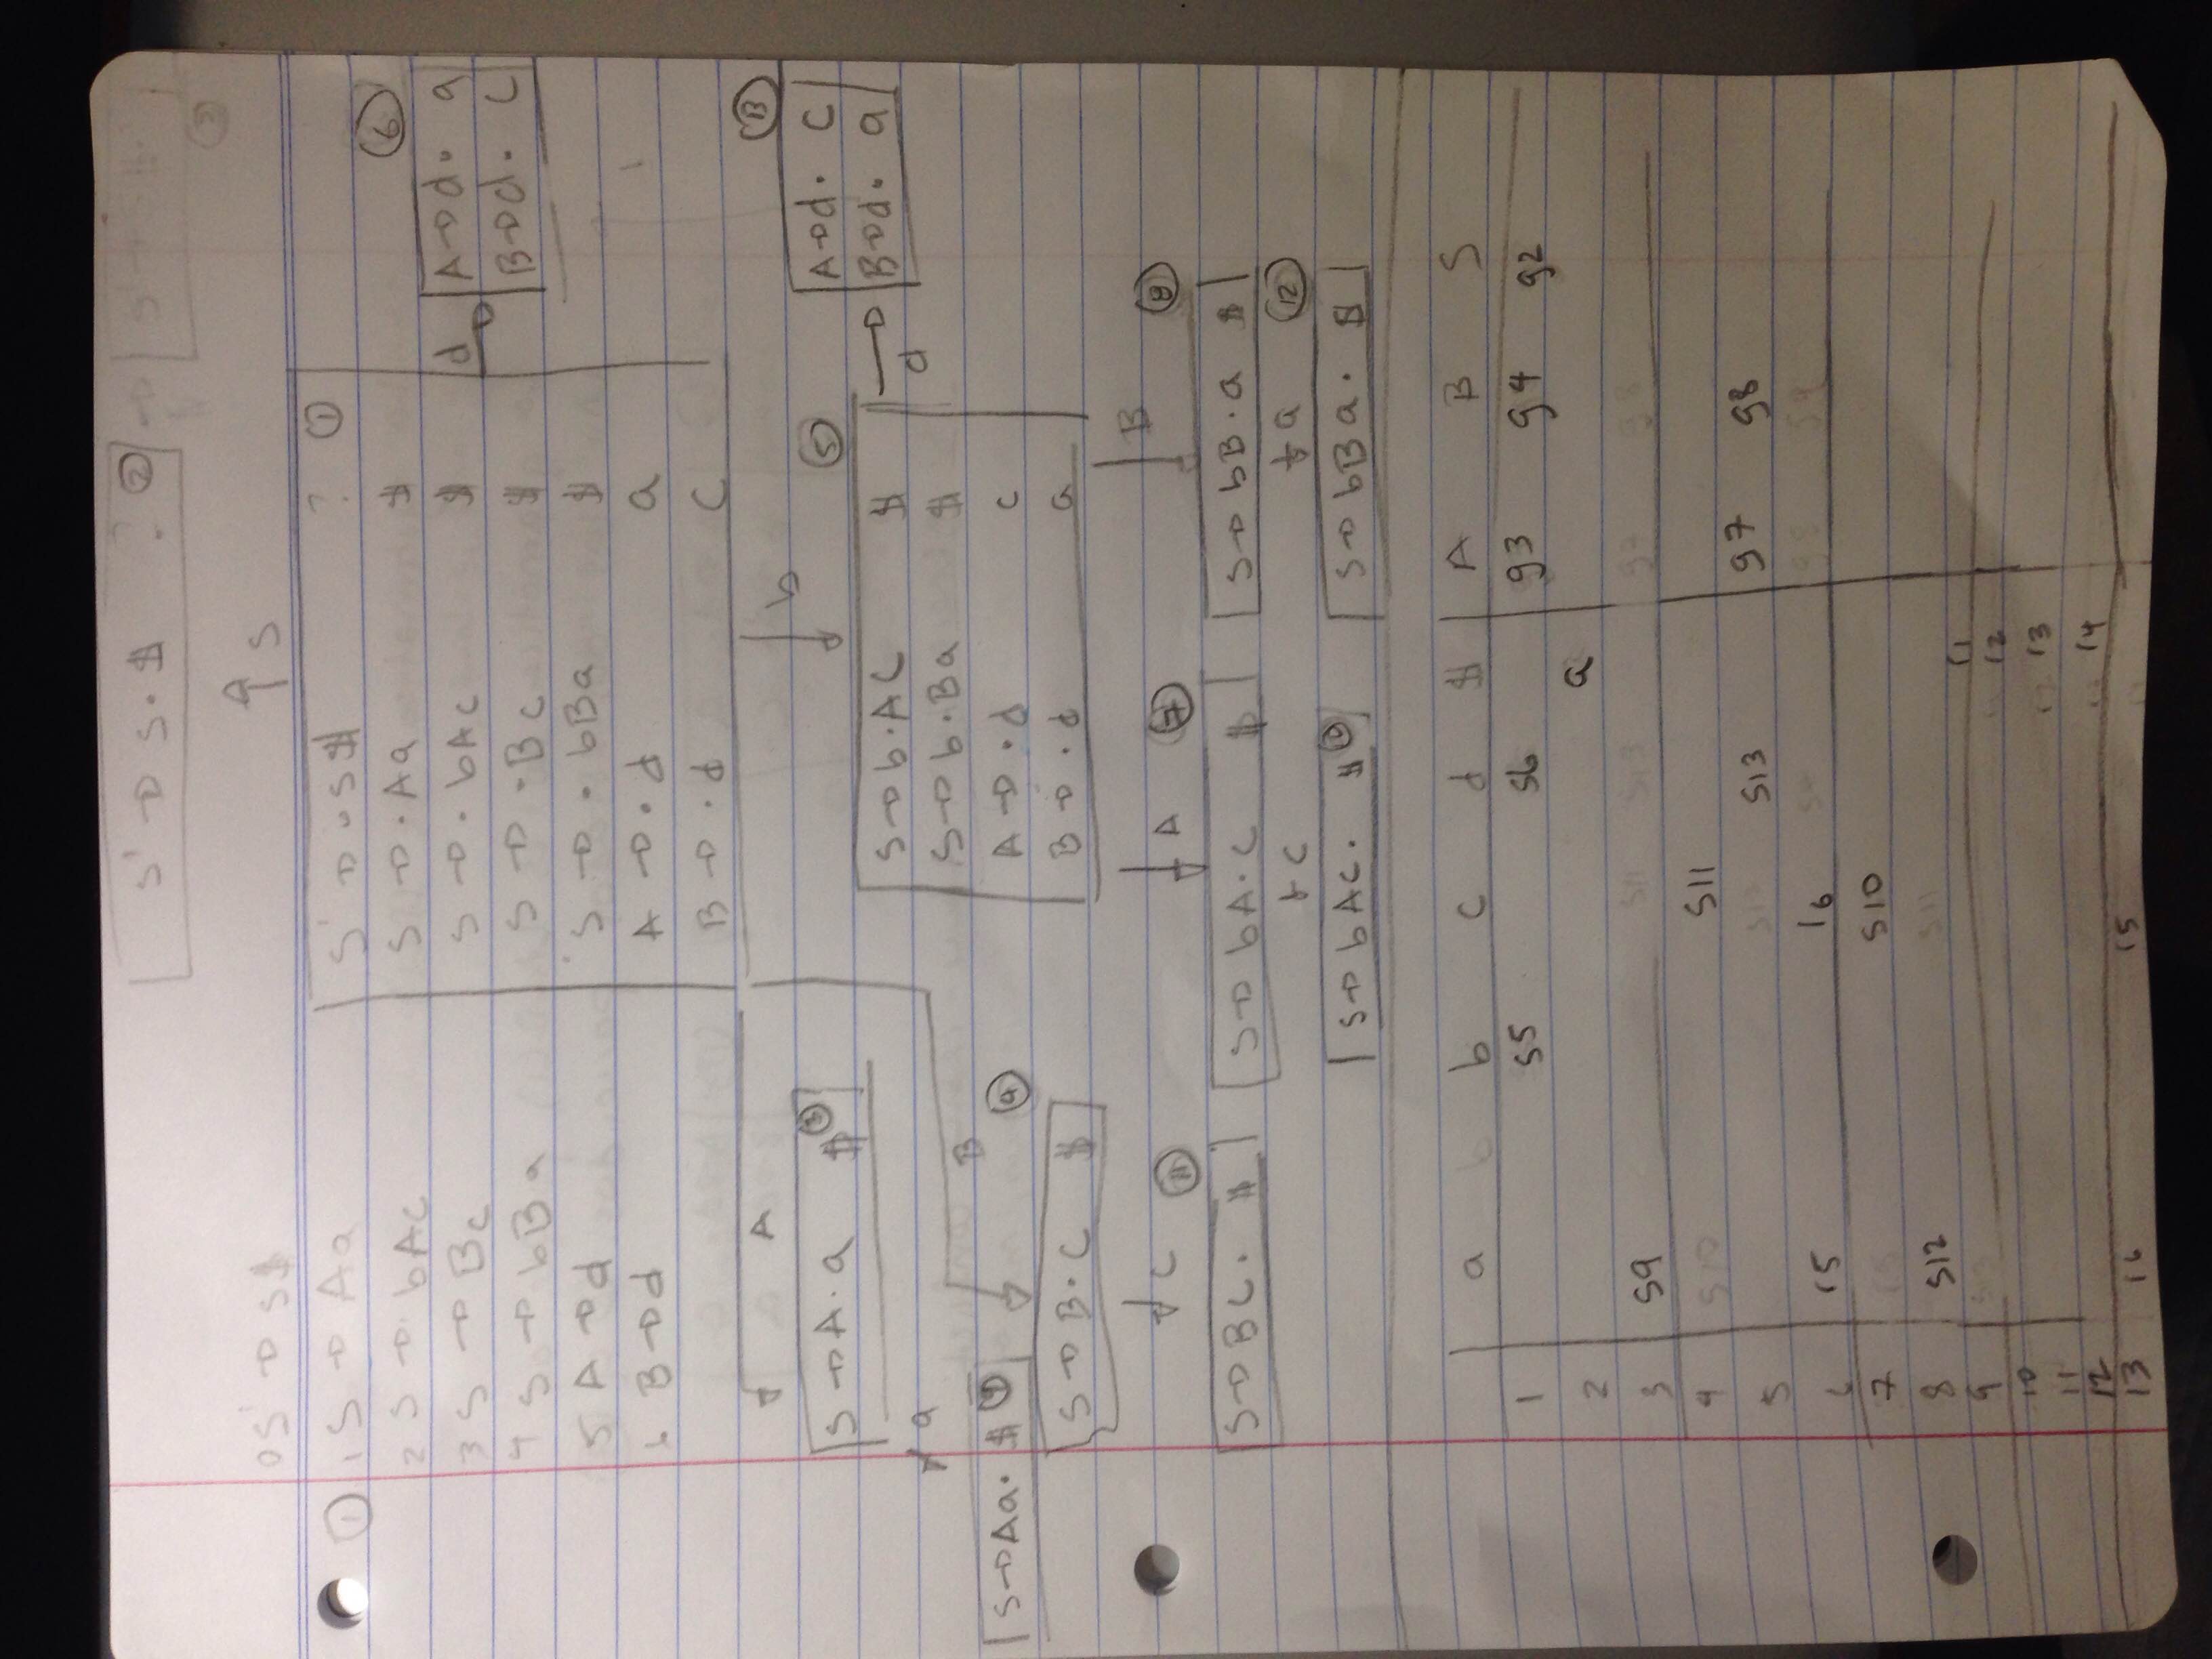 S' → S·$ ? ②
↑ S
0 S' → S$
① 1 S → Aa
2 S → bAc
3 S → Bc
4 S → bBa
5 A → d
6 B → d
S' → ·S$ ? ①
S → ·Aa $
S → ·bAc $
S → ·Bc $
S → ·bBa $
A → ·d a
B → ·d c
d
⑥
A → d· a
B → d· c
A
S → A·a $ ③
a
S → Aa· $ ⑨
B
④
S → B·c $
c
⑪
S → Bc· $
b
⑤
S → b·Ac $
S → b·Ba $
A → ·d c
B → ·d a
d
⑬
A → d· c
B → d· a
A ⑦
S → bA·c $
c
S → bAc· $ ⑩
B ⑧
S → bB·a $
a ⑫
S → bBa· $
a b c d $ A B S
1 s5 s6 g3 g4 g2
2 a
3 s9
4 s11
5 s13 g7 g8
6 r5 r6
7 s10
8 s12
9 r1
10 r2
11 r3
12 r4
13 r6 r5